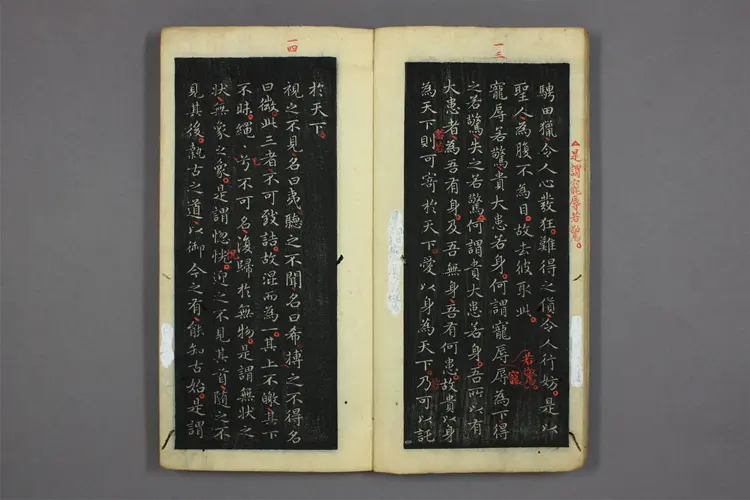 一三
是謂寵辱若驚。
騁田獵令人心發狂難得之貨令人行妨是以
聖人為腹不為目故去彼取此
寵辱若驚貴大患若身何謂寵辱辱為下得
若驚
寵
之若驚失之若驚何謂貴大患若身吾所以有
大患者為吾有身及吾無身吾有何患故貴以身
為天下則可寄於天下愛以身為天下乃可以託
一四
於天下
視之不見名曰夷聽之不聞名曰希摶之不得名
曰微此三者不可致詰故混而為一其上不皦其下
不昧繩〻兮不可名復歸於無物是謂無狀之
狀無象之象是謂惚恍迎之不見其首隨之不
見其後執古之道以御今之有能知古始是謂